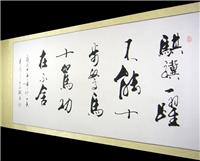 騏驥一躍
不能十
步駑馬
十駕功
在不舍